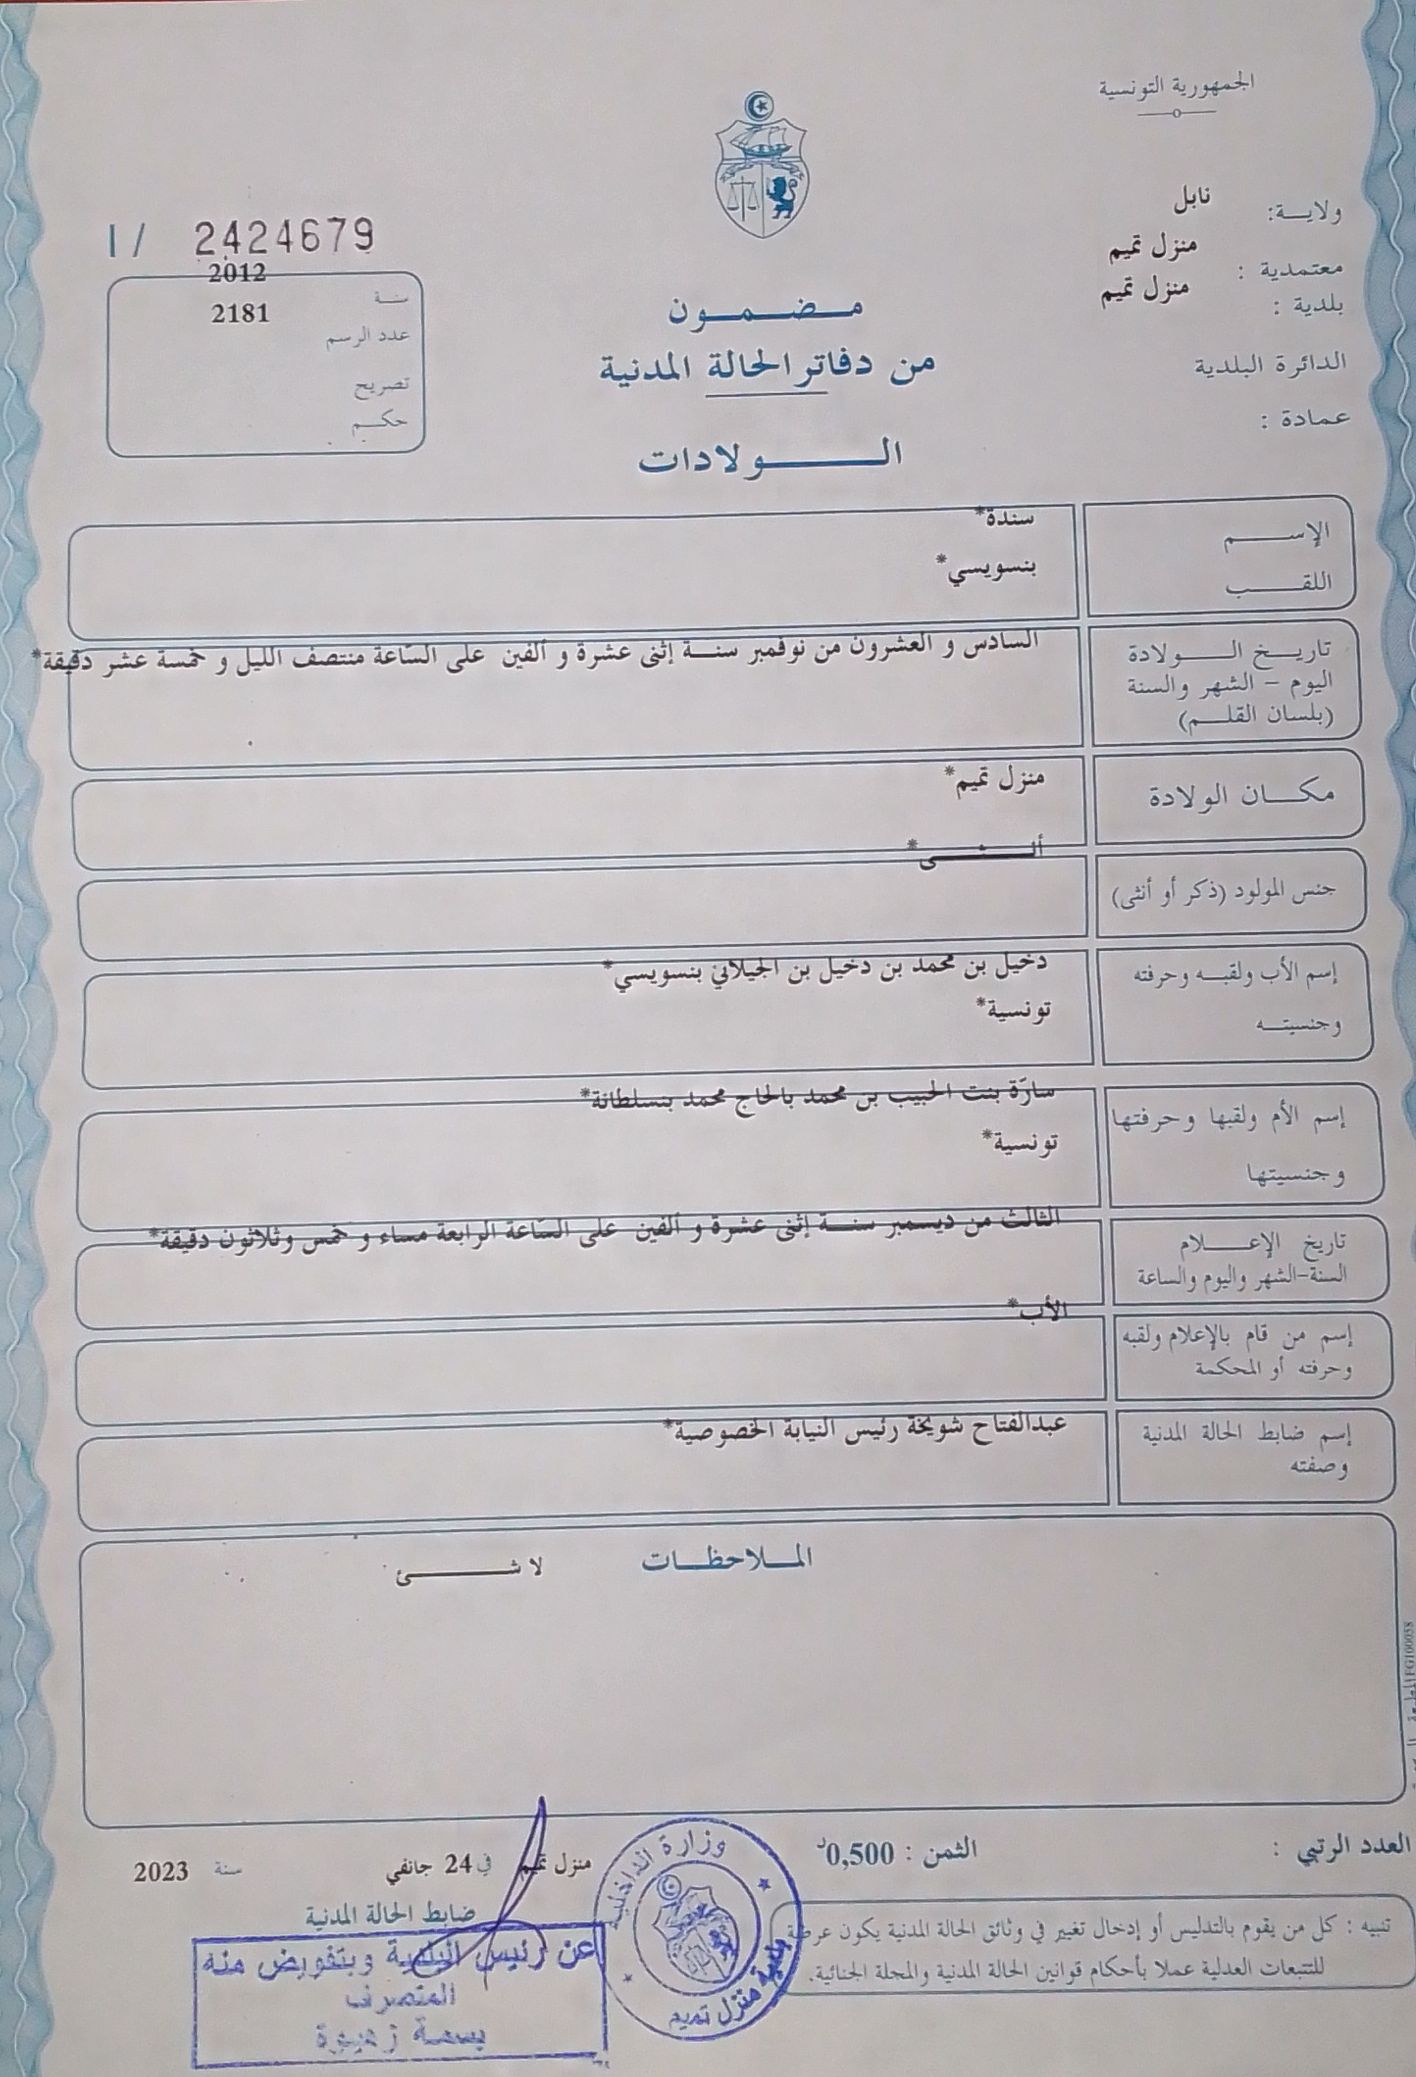 الجمهورية التونسية
ولايـــة: نابل
معتمدية : منزل تميم
بلدية : منزل تميم
الدائرة البلدية
عمادة :
I / 2424679
سنة 2012
عدد الرسم 2181
تصريح
حكم
مـــضـــمـــون
من دفاتر الحالة المدنية
الـــــولادات
الإســـم سندة*
اللقـــب بنسويسي*
تاريـخ الـــولادة السادس و العشرون من نوفمبر سنة إثنى عشرة و ألفين على السّاعة منتصف الليل و خمسة عشر دقيقة*
اليوم – الشهر والسنة
(بلسان القلـــم)
مكـــان الولادة منزل تميم*
جنس المولود (ذكر أو أنثى) أنــثــى*
إسم الأب ولقبـه وحرفته دخيل بن محمد بن دخيل بن الجيلاني بنسويسي*
وجنسيتـــه تونسية*
إسم الأم ولقبها وحرفتها سارّة بنت الحبيب بن محمد بالحاج محمد بنسلطانة*
وجنسيتها تونسية*
تاريخ الإعـــلام الثالث من ديسمبر سنة إثنى عشرة و ألفين على السّاعة الرابعة مساء و خمس وثلاثون دقيقة*
السنة-الشهر واليوم والساعة
إسم من قام بالإعلام ولقبه الأب*
وحرفته أو المحكمة
إسم ضابط الحالة المدنية عبدالفتاح شويخة رئيس النيابة الخصوصية*
وصفته
المـلاحظـــات لا شـــئ
FG100058
العدد الرتبي :
الثمن : 0,500د
منزل تميم في 24 جانفي سنة 2023
ضابط الحالة المدنية
تنبيه : كل من يقوم بالتدليس أو إدخال تغيير في وثائق الحالة المدنية يكون عرضة
للتتبعات العدلية عملا بأحكام قوانين الحالة المدنية والمجلة الجنائية.
وزارة الداخلية
بلدية منزل تميم
عن رئيس البلدية وبتفويض منه
المتصرف
بسمة